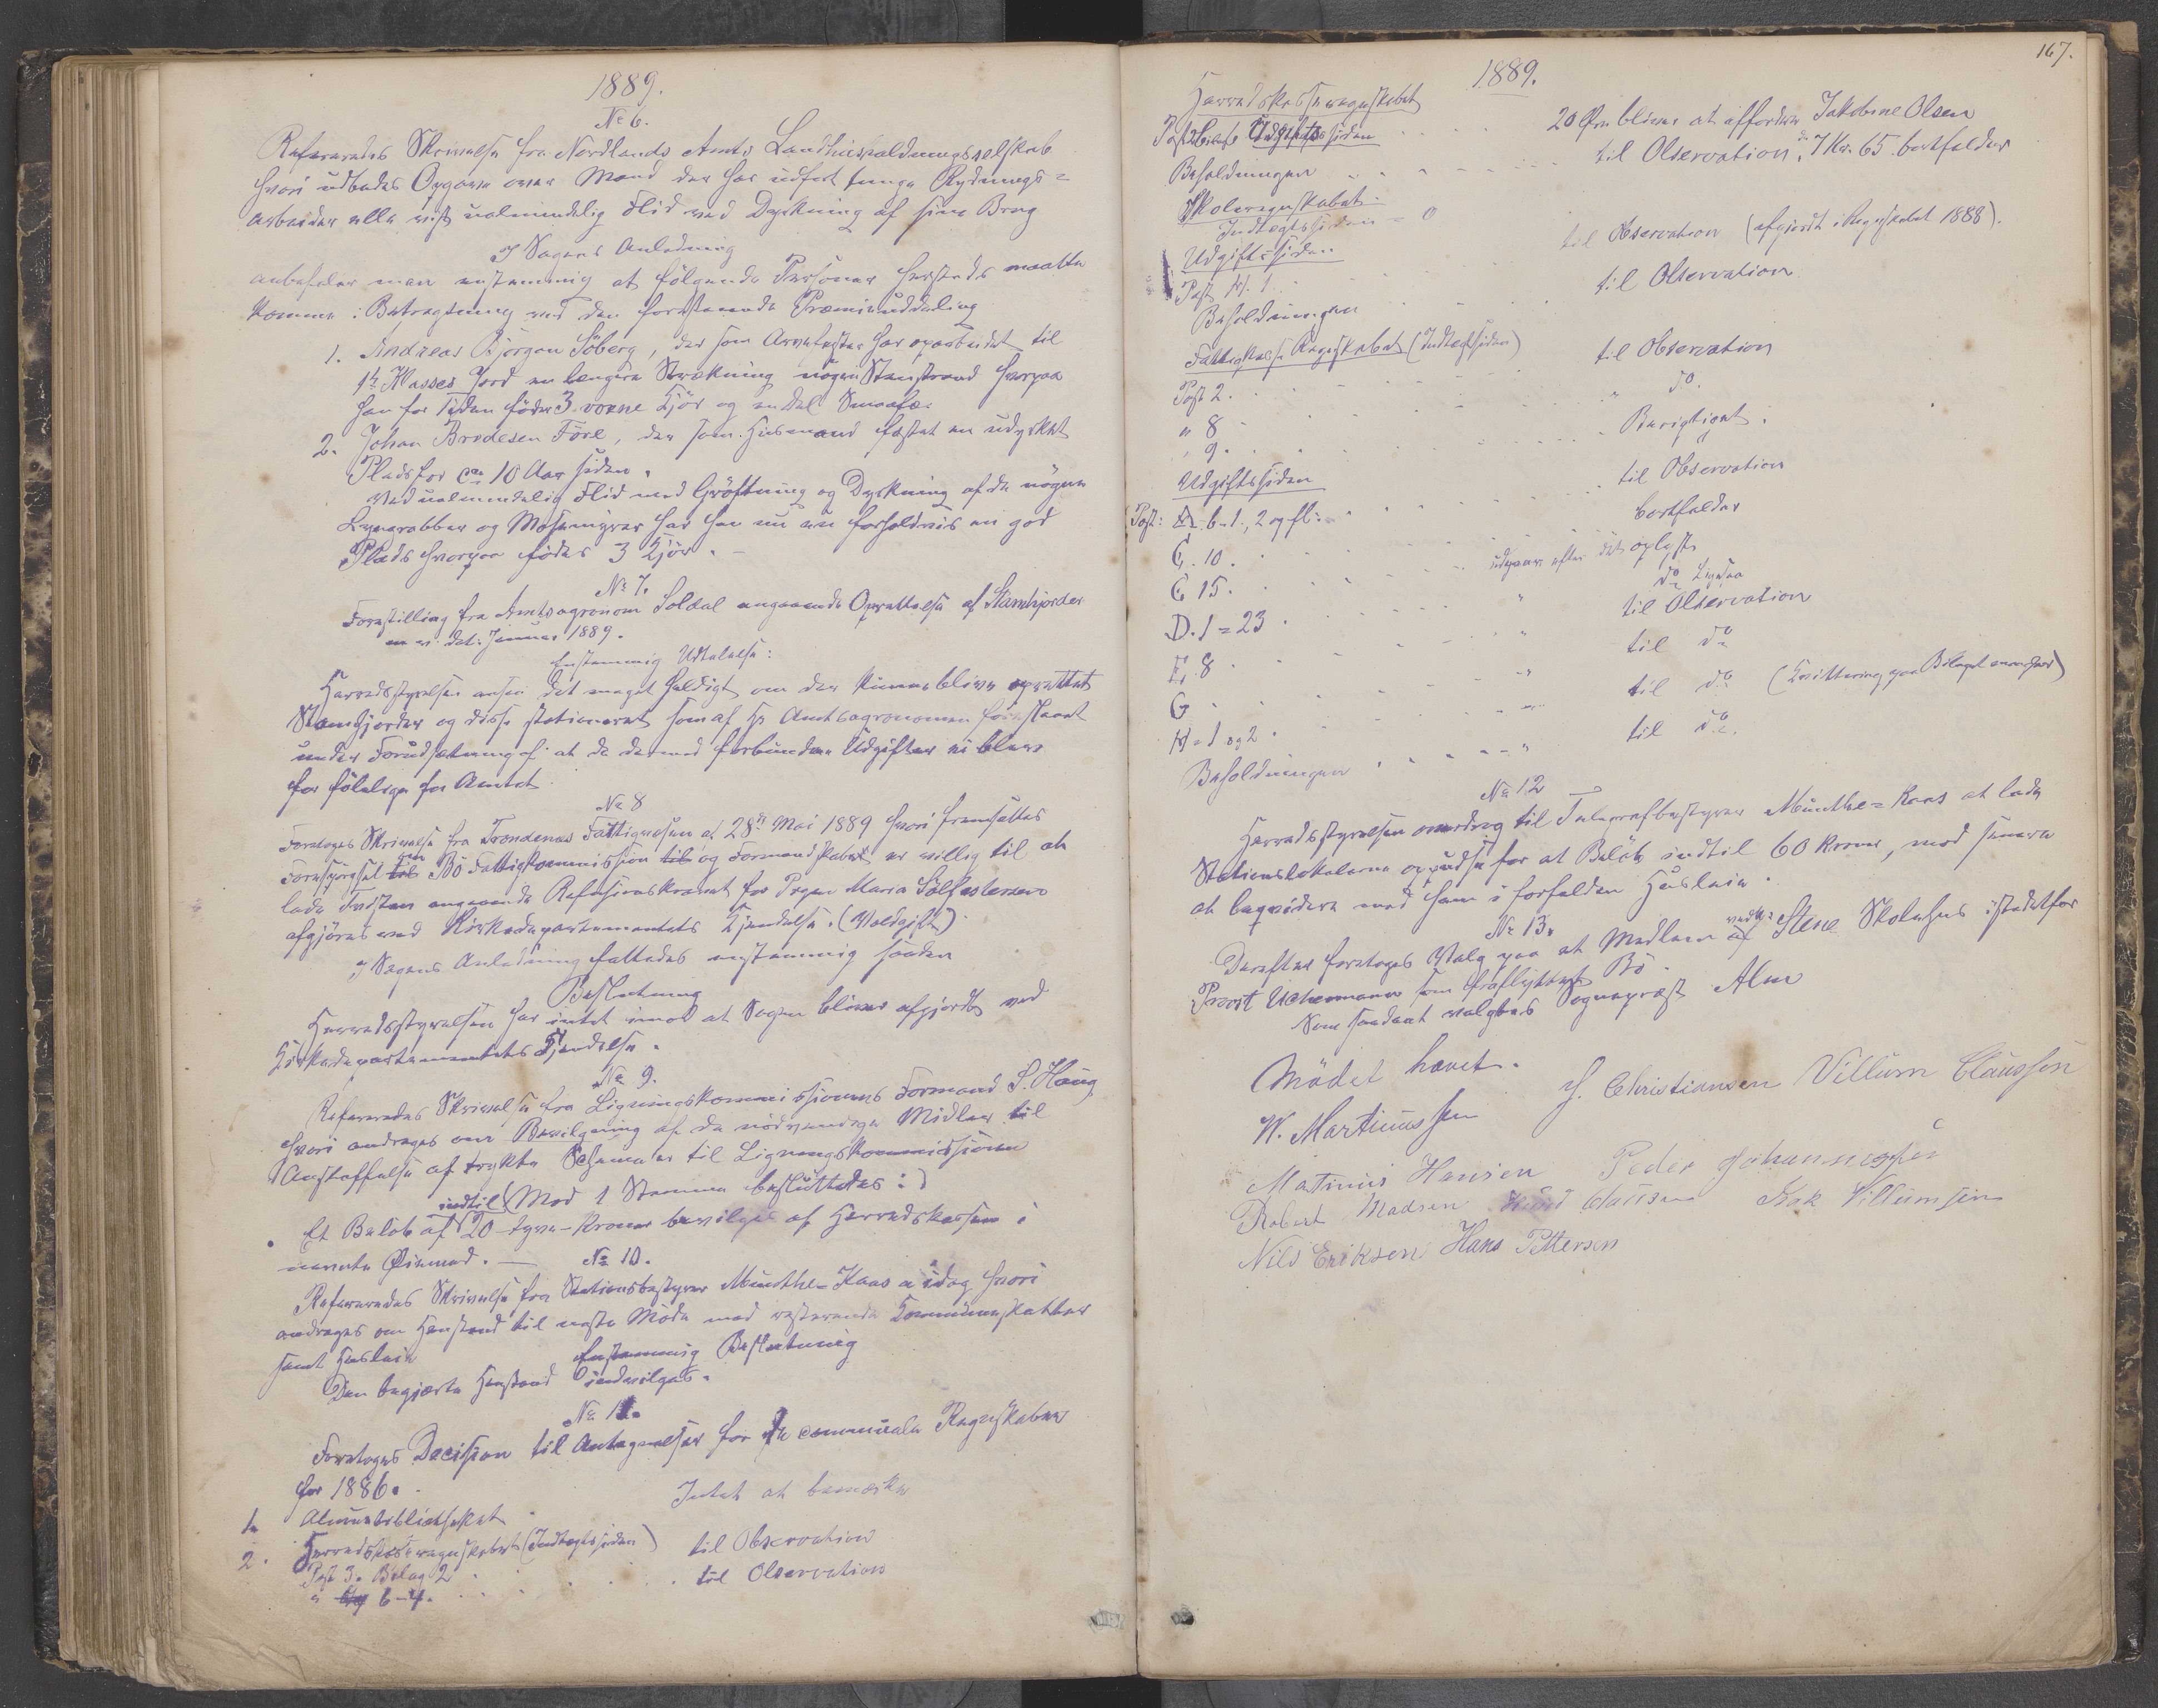 1889.
No 6.
Refereredes Skrivelse fra Nordlands Amts Landhusholdningsselskab
hvori udbedes Opgave over Mænd der har udført tunge Rydnings=
arbeider eller vist ualmindelig Flid ved Dyrkning af sine Brug
I Sagens Anledning
anbefaler man enstemmig at følgende Personer herfrads maatte
komme i Betragtning ved den forestaaende Præmieuddeling
1. Andreas Bjørgan Söberg, der som Arvefæster har oparbeidet til
1ste Klasses Jord en længere Strækning nögen Stenstrand hvorpaa
han for Tiden föder 3 voxne Kjör og endel Smaafæ.
2. Johan Brodesen Före, der som Husmand fæstet en udyrket
Plads for ca 10 Aar siden.
Ved ualmindelig Flid med Gröftning og Dyrkning af de nögne
Lyngrabber og Mosemyrer har han nu en forholdsvis en god
Plads hvorpaa födes 3 Kjör. —
No 7.
Forestilling fra Amtsagronom Soldal angaaende Oprettelse af Stamhjorder
m v. dat. Januar 1889.
Enstemmig Udtalelse:
Herredsstyrelsen anser det meget heldigt om der kunne blive oprettet
Stamhjorder og disse stationeret som af Hr Amtsagronomen foreslaaet
under Forudsætning af at de dermed forbundne Udgifter ei blive
for fölelige for Amtet.
No 8
Foretoges Skrivelse fra Trondenes Fattigvæsen af 28de Mai 1889 hvori fremsættes
Forespörgsel om Bö Fattigkommission og Formandskabet er villig til at
lade Tvisten angaaende Refusionskravet for Pigen Maria Sölfestersen
afgjöres ved Kirkedepartementets Kjendelse. (Voldgift).
I Sagens Anledning fattedes enstemmig saaden
Beslutning
Herredsstyrelsen har intet imod at Sagen bliver afgjordt ved
Kirkedepartementets Kjendelse.
No 9.
Refereredes Skrivelse fra Ligningskommissionens Formand S. Haug
hvori andrages om Bevilgning af de nödvendige Midler til
Anskaffelse af trykte Schemaer til Ligningskommissionen
(Mod 1 Stemme besluttedes:)
Et Belöb af indtil 20 - tyve - Kroner bevilges af Herredskassen i
nævnte Öiemed. —
No 10.
Refereredes Skrivelse fra Stationsbestyrer Münthe-Kaas a idag hvori
andrages om Henstand til næste Möde med resterende Kommuneskatter
samt Husleie
Enstemmig Beslutning
Den begjærte Henstand indvilges.
No 11.
Foretoges Decision til Antegnelser for de communale Regnskaber
for 1886.
1. Intet at bemærke
2. Herredskasseregnskabet (Indtægtssiden)
Post 3. Bilag 2 . . . til Observation
" 6-4. . . . til Observation
167.
1889.
Herredskasseregnskabet
Udgiftssiden . . . . 20 Øre bliver at affordre Jakobine Olsen
Beholdningen . . . . til Observation, 7 Kr. 65 bortfalder
Skoleregnskabet.
Indtægtssiden = 0
Udgiftssiden
Post H. 1 . . til Observation (afgjordt i Regnskabet 1888).
Beholdningen . . . til Observation
Fattigkasse Regnskabet (Indtægtssiden)
Post 2. . . . til Observation
" 8 . . . " do.
" 9. . . . Berigtiget.
Udgiftssiden
Post: A. b-1., 2 og fl: . . . til Observation
C. 10. . . . bortfalder
C 15. . . . udgaar efter det oplyste
D. 1=23 . . . " do Ligesaa
E. 8 . . . " til Observation
G . . . " til do
H-1 og 2. . . . til do (Kvittering paa Bilaget mangler)
Beholdningen . . . " til do.
No 12
Herredsstyrelsen overdrog til Telegrafbestyrer Münthe=Kaas at lade
Stationslokalerne oppudse for et Belöb indtil 60 Kroner, mod senere
at liqvidere med ham i forfalden Husleie.
No 13.
Derefter foretoges Valg paa et Medlem vedk: Stene Skolehus istedetfor
Provst Uchermann som fraflyttet Bö.
Som saadant valgtes Sognepræst Alm
Mödet hævet.
W. Martinussen J. Christiansen Villum Claussen
Matinus Hansen Peder Johannessen
Robert Madsen Knud Claussen Isak Villumsen
Nils Eriksen Hans Pettersen